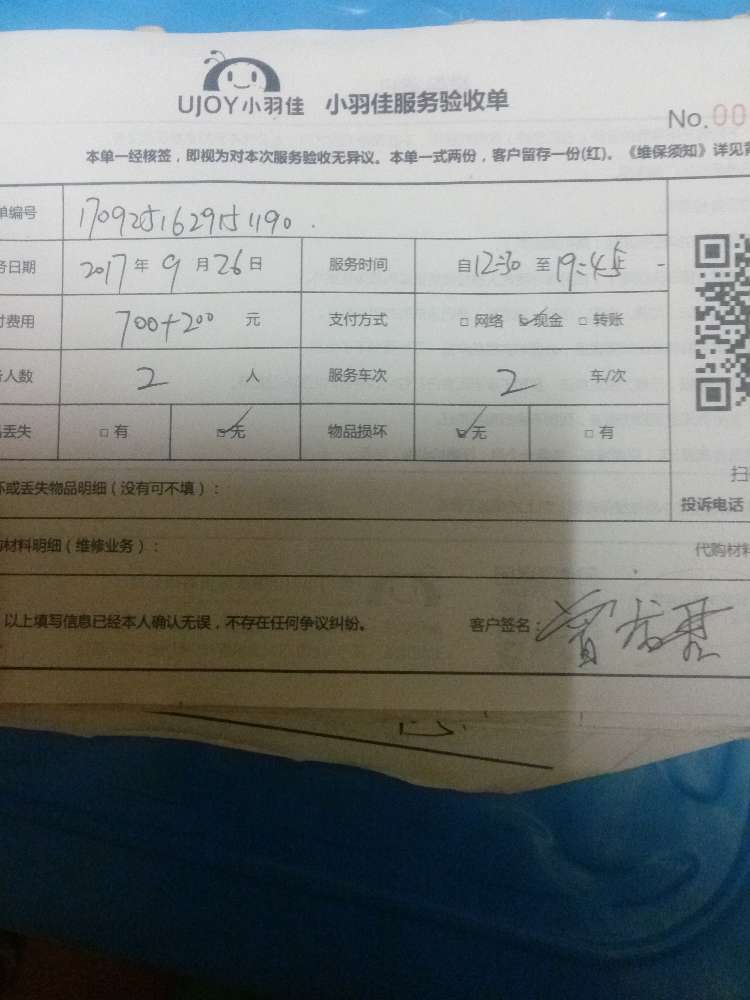 UJOY小羽佳 小羽佳服务验收单
No.00
本单一经核签，即视为对本次服务验收无异议。本单一式两份，客户留存一份(红)。《维保须知》详见背
单编号 1709251629151190
务日期 2017年9月26日 服务时间 自12:30至19:45
付费用 700+200 元 支付方式 □网络 ☑现金 □转账
务人数 2 人 服务车次 2 车/次
品丢失 □有 ☑无 物品损坏 ☑无 □有
扫
坏或丢失物品明细（没有可不填）：
投诉电话
购材料明细（维修业务）：
代购材料
以上填写信息已经本人确认无误，不存在任何争议纠纷。 客户签名：